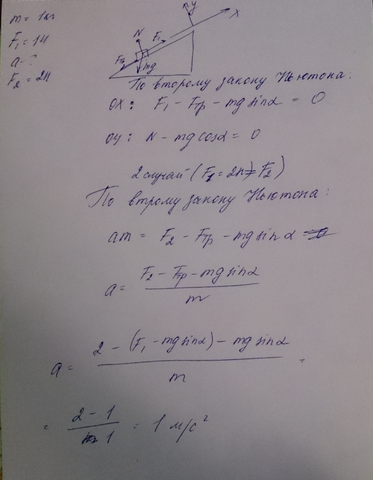 m = 1кг
F₁ = 1Н
a - ?
F₂ = 2Н
y
x
N
F₁
Fтр
mg
По второму закону Ньютона:
ox: F₁ - Fтр - mg sinα = 0
oy: N - mg cosα = 0
2 случай (F₂ = 2Н F₂)
По втрому закону Ньютона:
am = F₂ - Fтр - mg sin α
a = F₂ - Fтр - mg sinα / m
a = 2 - (F₁ - mg sinα) - mg sinα / m =
= 2 - 1 / 1 = 1 м/с²